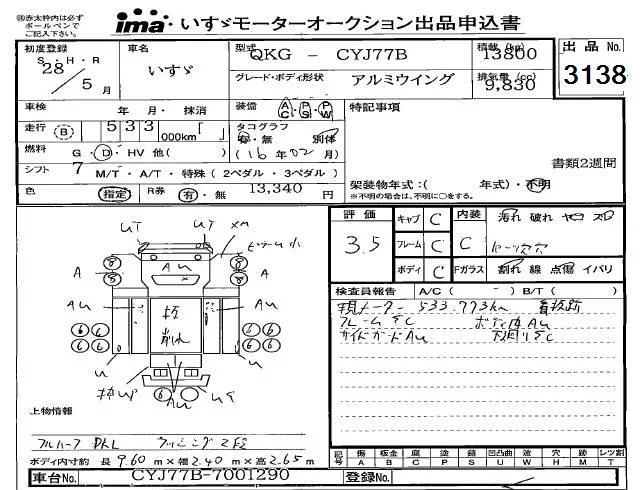 ※赤太枠内は必ず
ボールペンで
ご記入下さい。
ima いすゞモーターオークション出品申込書
初度登録
S・H・R
28
5 月
車名
いすゞ
型式
QKG - CYJ77B
積載 (kg)
13800
出品 No.
3138
グレード・ボディ形状 アルミウイング
排気量 (cc)
9,830
車検 年 月・抹消
装備 AC・PS・PW
特記事項
走行 B 533 000km
タコグラフ
有・無 別体
(16 年 02 月)
燃料 G・D・HV 他( )
書類2週間
シフト 7 M/T・A/T・特殊(2ペダル・3ペダル)
架装物年式:( 年式)・不明
※不明の場合は、不明に○をする。
色 指定 R券 有・無 13,340 円
評価 3.5
キャブ C
内装 C
汚れ 破れ ヤコゲ スレ
フレーム C
ボディ C
Fガラス 割れ 線 点傷 イバリ
検査員報告 A/C( - )B/T( )
533.773km 看板跡
フレームSC ボディ内AU
サイドガードAU 下廻りSC
UT UT XM
A AU A
AU AU
削れ
6 6 6 6
6 6 6 6
U U
6 AU
上物情報
フルハーフ
ボディ内寸約 長 9.60 m×幅 2.40 m×高 2.65 m
記号 傷 板金 腐 塗 錆 凹凸曲 波 穴 跡 レツ割
A B C P S U W H M T
車台No. CYJ77B-7001290
登録No.